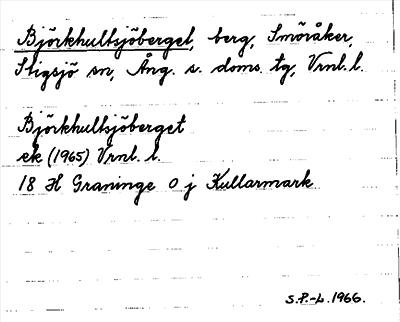 Björkhultsjöberget, berg, Smöråker,
Stigsjö sn, Ång. s. doms. tg, Vrnl. l.
Björkhultsjöberget
ek (1965) Vrnl. l.
18 H Graninge 0 j Kullarmark
S.P.-L. 1966.